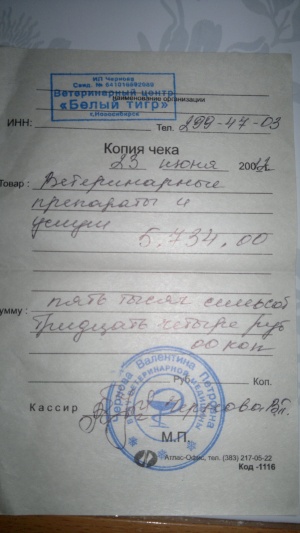 ИП Чернова
Ветеринарный центр
«Белый тигр»
г.Новосибирск
наименование организации
ИНН: Тел. 299-47-03
Копия чека
23 июня 200
Товар: Ветеринарные
препараты и
услуги
5.734,00
умму: пять тысяч семьсот
тридцать четыре руб
00 коп
Руб. Коп.
Кассир Чернова В.П.
М.П.
Чернова Валентина Петровна
Атлас-Офис, тел. (383) 217-05-22
Код -1116